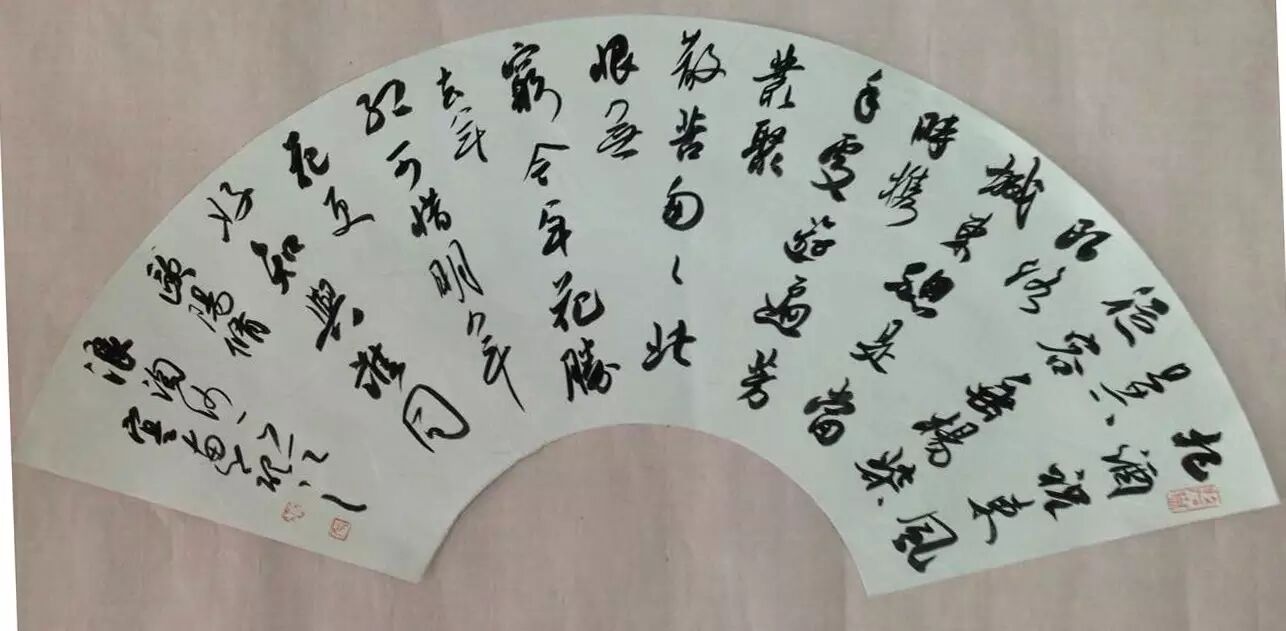 把酒祝東風
且共
從容垂楊紫
陌洛
城東總是當
時攜
手處遊遍芳
叢聚
散苦匆々此
恨無
窮今年花勝
去年
紅可惜明年
花更
好知與誰同
歐陽脩
浪淘沙